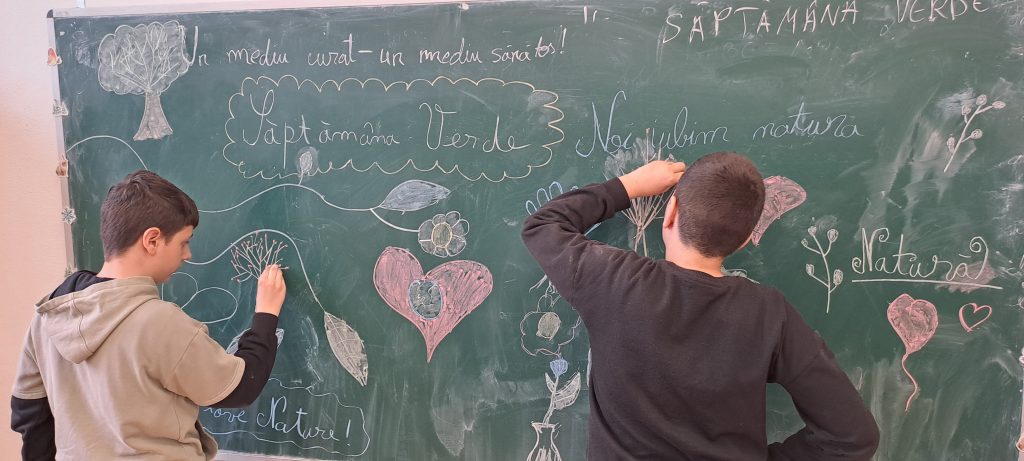 Un mediu curat-un mediu sănătos!
SĂPTĂMÂNA VERDE
Săptămâna Verde
Noi iubim natura
Natură
love Nature!